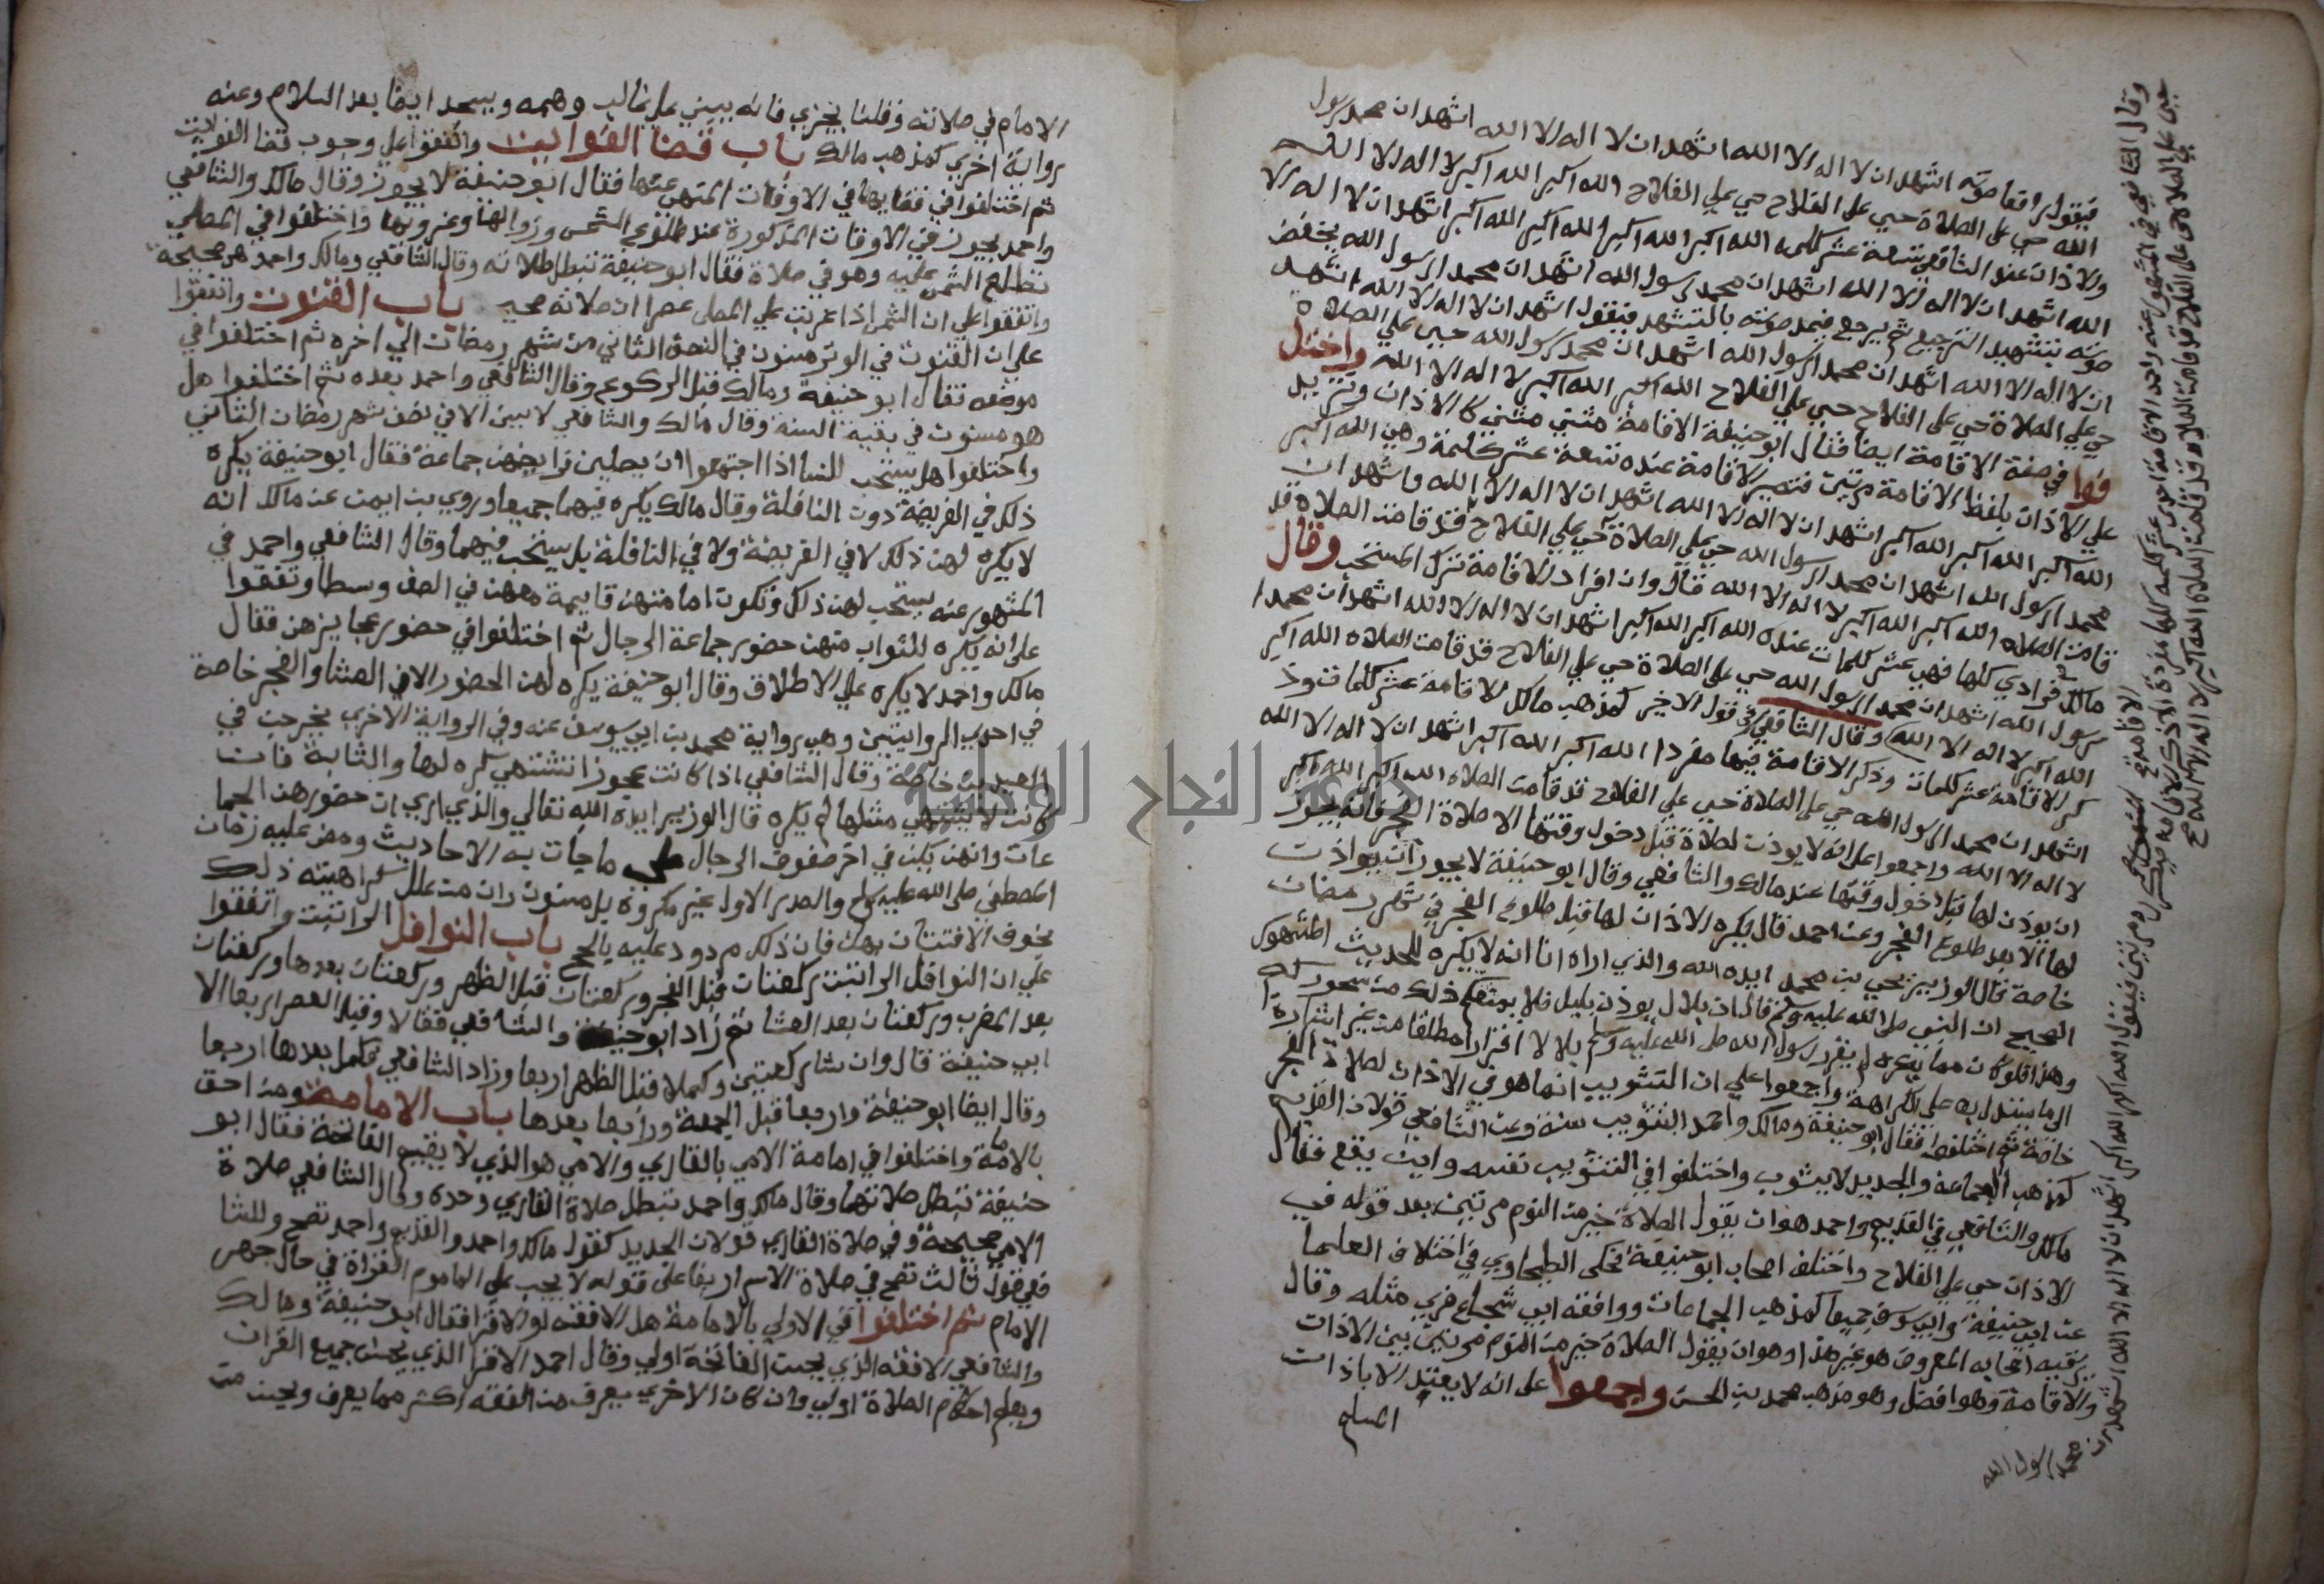 فيقول رافعا صوته اشهد ان لا اله الا الله اشهد ان لا اله الا الله اشهد ان محمد رسول
الله حي على الصلاة حي على الفلاح حي على الفلاح الله اكبر الله اكبر لا اله الا الله
والاذان عند الشافعي تسعة عشر كلمه الله اكبر الله اكبر الله اكبر الله اكبر اشهد ان لا اله الا
الله اشهد ان لا اله الا الله اشهد ان محمد رسول الله اشهد ان محمدا رسول الله يخفض
صوته بتشهيد الترجيع ثم يرجع فيمد صوته بالتشهد فيقول اشهد ان لا اله الا الله اشهد
ان لا اله الا الله اشهد ان محمدا رسول الله اشهد ان محمد رسول الله حي على الصلاة
حي علي الصلاة حي على الفلاح حي علي الفلاح الله اكبر الله اكبر لا اله الا الله واختل
فوا في صفة الاقامة ايضا فقال ابو حنيفة الاقامة مثني مثني كالاذان وتزيد
علي الاذان بلفظ الاقامة مرتين فتصير الاقامة عنده سبعة عشر كلمة وهي الله اكبر
الله اكبر الله اكبر الله اكبر اشهد ان لا اله الا الله اشهد ان لا اله الا الله واشهد ان
محمدا رسول الله اشهد ان محمدا رسول الله حي على الصلاة حي علي الفلاح قد قامت الصلاة قد
قامت الصلاه الله اكبر الله اكبر لا اله الا الله قال وان افراد الاقامة ترك المستحب وقال
مالك فرادي كلها فهي عشر كلمات عنده الله اكبر الله اكبر اشهد ان لا اله الا الله اشهد ان محمدا
رسول الله اشهد ان محمدا رسول الله حي على الصلاة حي علي الفلاح قد قامت الصلاه الله اكبر
الله اكبر لا اله الا الله وقال الشافعي في قول الاخير كمذهب مالك الاقامة عشر كلمات وذ
كر الاقامة عشر كلمات وذكر الاقامة فيها مفردا الله اكبر الله اكبر اشهد ان لا اله الا الله
اشهد ان محمدا رسول الله حي على الصلاة حي علي الفلاح قد قامت الصلاه الله اكبر الله اكبر
لا اله الا الله واجمعوا على انه لا يوذن لصلاة قبل دخول وقتها الا صلاة الفجر فانه يجوز
ان يوذن لها قبل دخول وقتها عند مالك والشافعي وقال ابو حنيفة لا يجوز ان يوذن
لها الا بعد طلوع الفجر وعن احمد قال يكره الاذان لها قبل طلوع الفجر في شهر رمضان
خاصة قال الوزير يحيى بن محمد ايده الله والذي اراه انا انه لا يكره للحديث المشهور
الصحيح ان النبي صلى الله عليه وسلم قال ان بلال يوذن بليل فلا يمنعكم ذلك من سحوركم
وهذا فلو كان مما يكره لم يقرر رسول الله صلى الله عليه وسلم بلالا اقرارا مطلقا من غير
الي ما يستدل به على الكراهة واجمعوا علي ان التثويب انما هو في الاذان لصلاة الفجر
خاصة ثم اختلفوا فقال ابو حنيفة ومالك واحمد التثويب سنة وعن الشافعي قولان القديم
كمذهب الجماعة والجديد لا يثوب واختلفوا في التثويب نفسه واين يقع فقال
مالك والشافعي في القديم واحمد هو ان يقول الصلاة خير من النوم مرتين بعد قوله في
الاذان حي على الفلاح واختلف اصحاب ابو حنيفة فحكى الطحاوي في اختلاف العلما
عن ابي حنيفة وابي يوسف جميعا كمذهب الجماعات ووافقه ابن شجاع مثله وقال
بقيه اصحابه المعروف هو غير هذا وهو ان يقول الصلاة خير من النوم مرتين بين الاذان
والاقامة وهو افضل وهو مذهب محمد بن الحسن واجمعوا على انه لا يعتد الا باذان
المسلم
وقال الشافعي في المشهور عنه واحمد الاقامة احدي عشر كلمه كلها مفردة الا ذكر الاقامه
مرتين فيقول الله اكبر الله اكبر اشهد ان لا اله الا الله اشهد ان محمدا رسول الله
حي على الصلاة حي على الفلاح قد قامت الصلاه قد قامت الصلاه الله اكبر الله اكبر لا اله الا الله صح
الامام في صلاته وقلنا يجزي فانه يبني على غالب وهمه ويسجد ايضا بعد السلام وعنه
رواية اخري كمذهب مالك باب قضا الفوايت واتفقوا علي وجوب قضا الفوايت
ثم اختلفوا في قضايها في الاوقات المنهي عنها فقال ابو حنيفة لا يجوز وقال مالك والشافعي
واحمد يجوز في الاوقات المذكورة عند طلوع الشمس وزوالها وغروبها واختلفوا في المصلي
تطلع الشمس عليه وهو في صلاة فقال ابو حنيفة تبطل صلاته وقال الشافعي ومالك واحمد هي صحيحة
واتفقوا علي ان الشمس اذا غربت علي المصلى عصرا ان صلاته صحيـ باب القنوت واتفقوا
علي ان القنوت في الوتر مسنون في النصف الثاني من شهر رمضان الي اخره ثم اختلفوا في
موضعه فقال ابو حنيفة ومالك قبل الركوع وقال الشافعي واحمد بعده ثم اختلفوا هل
هو مسنون في بقية السنة وقال مالك والشافعي لا يسن الا في نصف شهر رمضان الثاني
واختلفوا هل يستحب للنسا اذا اجتمعوا ان يصلين فرايضهن جماعة فقال ابو حنيفة يكره
ذلك في الفريضة دون النافلة وقال مالك يكره فيهما جميعا وروي بن ايمن عن مالك انه
لا يكره لهن ذلك لا في الفريضة ولا في النافلة بل يستحب فيهما وقال الشافعي واحمد في
المشهور عنه يستحب لهن ذلك وتكون امامتهن قايمة معهن في الصف وسطا وتفقوا
على انه يكره للشواب منهن حضور جماعة الرجال ثم اختلفوا في حضور عجايزهن فقال
مالك واحمد لا يكره علي الاطلاق وقال ابو حنيفة يكره لهن الحضور الا في العشا والفجر خاصة
في احدي الروايتين وهي رواية محمد بن ابي يوسف عنه وفي الرواية الاخري يخرجن في
العيدين خاصة وقال الشافعي اذا كانت عجوزا تشتهي يكره لها والشابة فان
كانت لا يشتهي مثلها لم يكره قال الوزير ايده الله تعالي والذي اري ان حضورهن الجما
عات وانهن يكن في اخر صفوف الرجال على ما جات به الاحاديث ومضي عليه زمان
المصطفي صلى الله عليه وسلم والصدر الاول غير مكروه بل مسنون وان من علل كراهيته ذلك
بخوف الافتتان بهن فان ذلك مردود عليه بالحج باب النوافل الراتبت واتفقوا
علي ان النوافل الراتبت ركعتان قبل الفجر وركعتان قبل الظهر وركعتان بعدها وركعتان
بعد المغرب وركعتان بعد العشا ثم زاد ابو حنيفة والشافعي فقالا وقبل العصر اربعا الا
ابي حنيفة قال وان شا ركعتين وكملا قبل الظهر اربعا وزاد الشافعي فكمل بعدها اربعا
وقال ايضا ابو حنيفة واربعا قبل الجمعة واربعا بعدها باب الامامة ومن احق
بالامامة واختلفوا في امامة الامي بالقاري والامي هو الذي لا يقيم الفاتحة فقال ابو
حنيفة تبطل صلاتهما وقال مالك واحمد تبطل صلاة القاري وحده وقال الشافعي صلاة
الامي صحيحة وفي صلاة القاري قولان الجديد كقول مالك واحمد والقديم واحمد تصح وللشا
فعي قول ثالث تصح في صلاة الاسرار بناعلى قوله لا يجب على الماموم القراة في حال جهر
الامام ثم اختلفوا في الاولي بالامامة هل الافقه او الاقرا فقال ابو حنيفة ومالك
والشافعي الافقه الذي يحسن الفاتحة اولي وقال احمد الاقرا الذي يحسن جميع القران
ويعلم احكام الصلاة اولي وان كان الاخري يعرف من الفقه اكثر مما يعرف ويحسن من
جامعة النجاح الوطنية